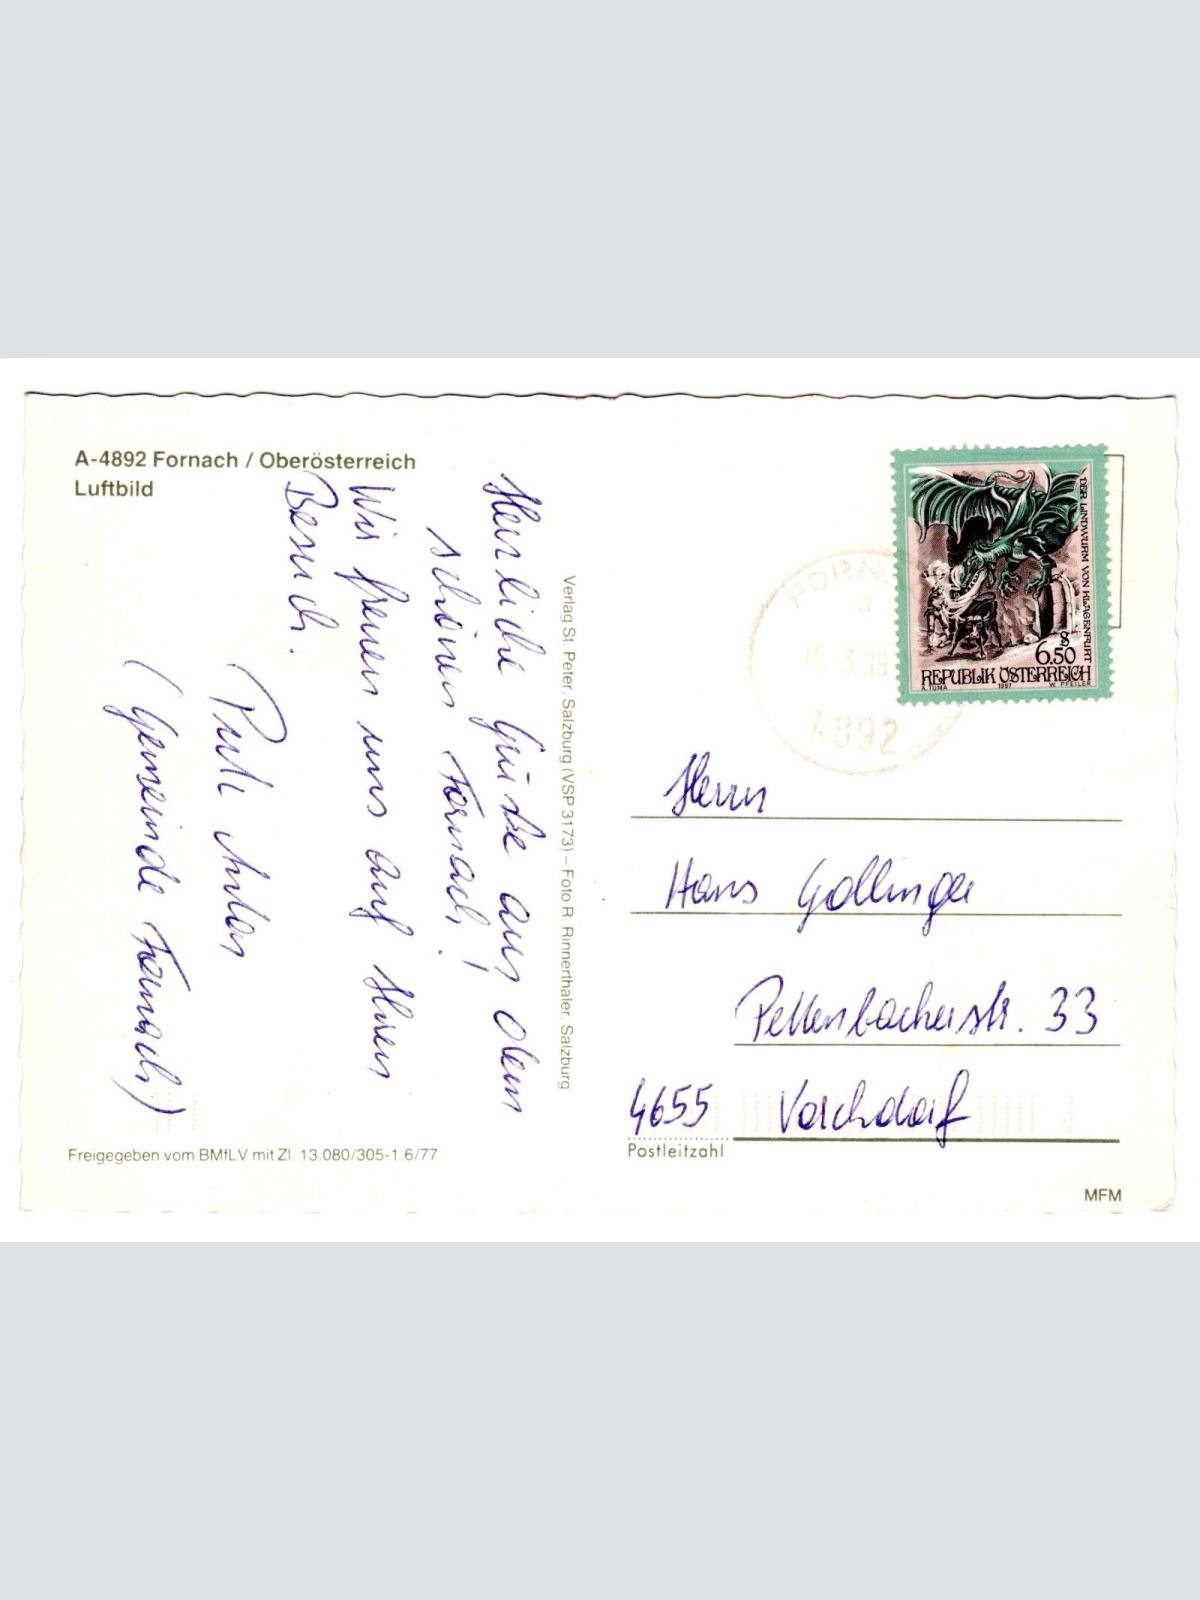 A-4892 Fornach / Oberösterreich
Luftbild
Herzliche Grüße aus dem
schönen Fornach!
Wir freuen uns auf Ihren
Besuch.
(Gemeinde Fornach)
Verlag St. Peter, Salzburg (VSP 3173) – Foto R. Rinnerthaler, Salzburg
Freigegeben vom BMfLV mit Zl. 13.080/305-1.6/77
DER LINDWURM VON KLAGENFURT
S
6.50
REPUBLIK ÖSTERREICH
A. TUMA 1997 W. PFEILER
4892
Herrn
Hans Gollinger
Pettenbacherstr. 33
4655 Vorchdorf
Postleitzahl
MFM